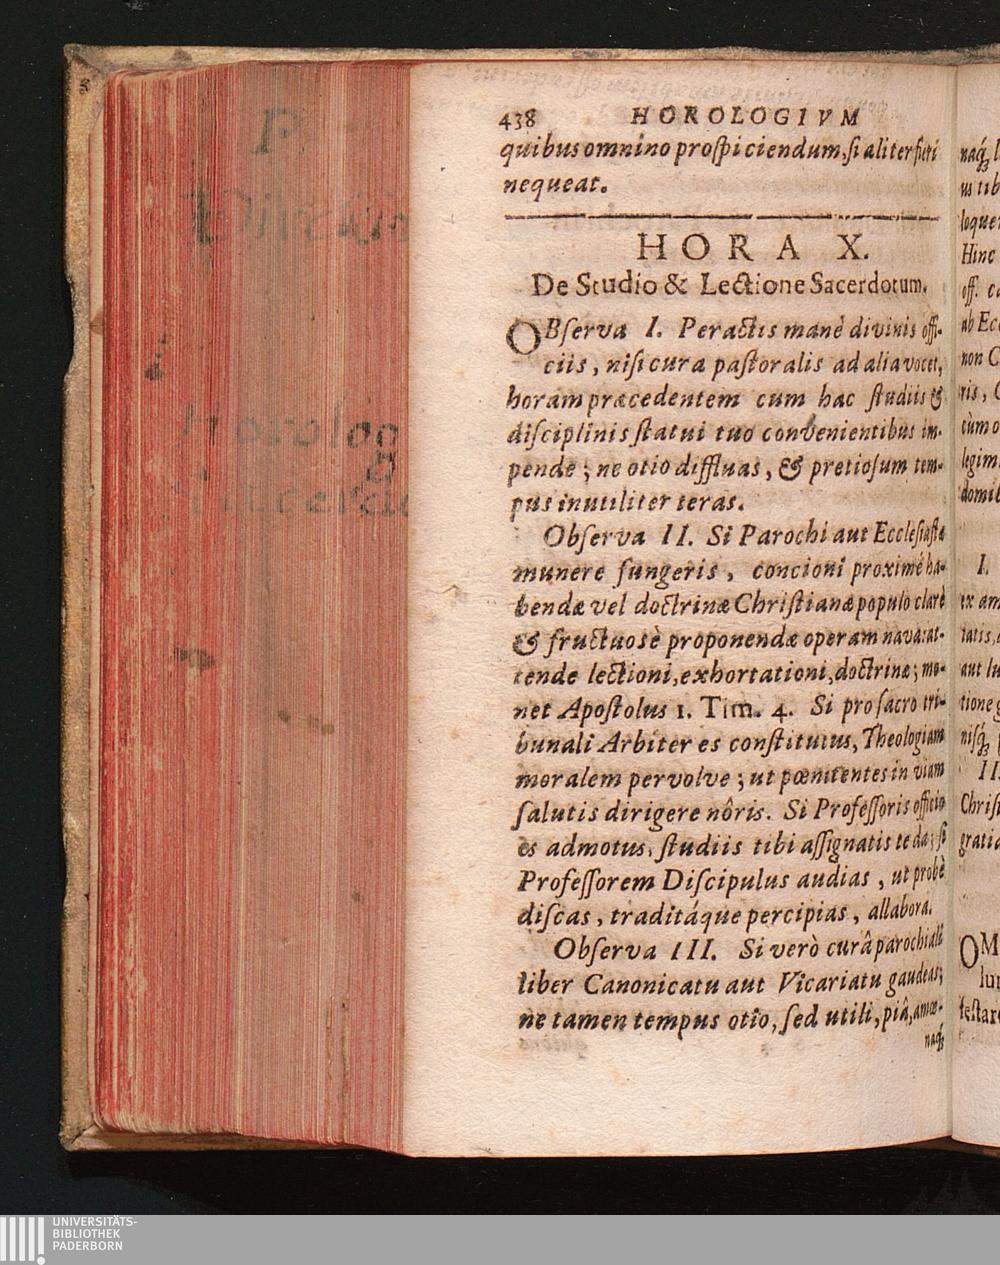 438 HOROLOGIVM
quibus omnino proſpiciendum, ſi aliter fieri
nequeat.
HORA X.
De Studio & Lectione Sacerdotum.
OBſerva I. Peractis manè divinis offi-
ciis, niſi cura paſtoralis ad alia vocet,
horam præcedentem cum hac ſtudiis &
diſciplinis ſtatui tuo convenientibus im-
pende; ne otio diffluas, & pretioſum tem-
pus inutiliter teras.
Obſerva II. Si Parochi aut Eccleſiaſtæ
munere fungeris, concioni proximè ha-
bendæ vel doctrinæ Chriſtianæ populo clarè
& fructuosè proponendæ operam nava: at-
tende lectioni, exhortationi, doctrinæ; mo-
net Apoſtolus 1. Tim. 4. Si pro ſacro tri-
bunali Arbiter es conſtitutus, Theologiam
moralem pervolve; ut pœnitentes in viam
ſalutis dirigere nôris. Si Profeſſoris officio
es admotus, ſtudiis tibi aſſignatis te da; ſi
Profeſſorem Diſcipulus audias, ut probè
diſcas, traditáque percipias, allabora.
Obſerva III. Si verò curâ parochiali
liber Canonicatu aut Vicariatu gaudeas;
ne tamen tempus otio, ſed utili, piâ, amœ-
naq́;
naq́; l
us tib
loquer
Hinc
off. ca
ab Ecc
non C
ris, C
cùm o
legim
domil
I.
ex am
tatis,
aut lu
tione g
niſq́; p
II.
Chriſt
gratia
OM
lun
teſtar
P.
Horolog
UNIVERSITÄTS-
BIBLIOTHEK
PADERBORN